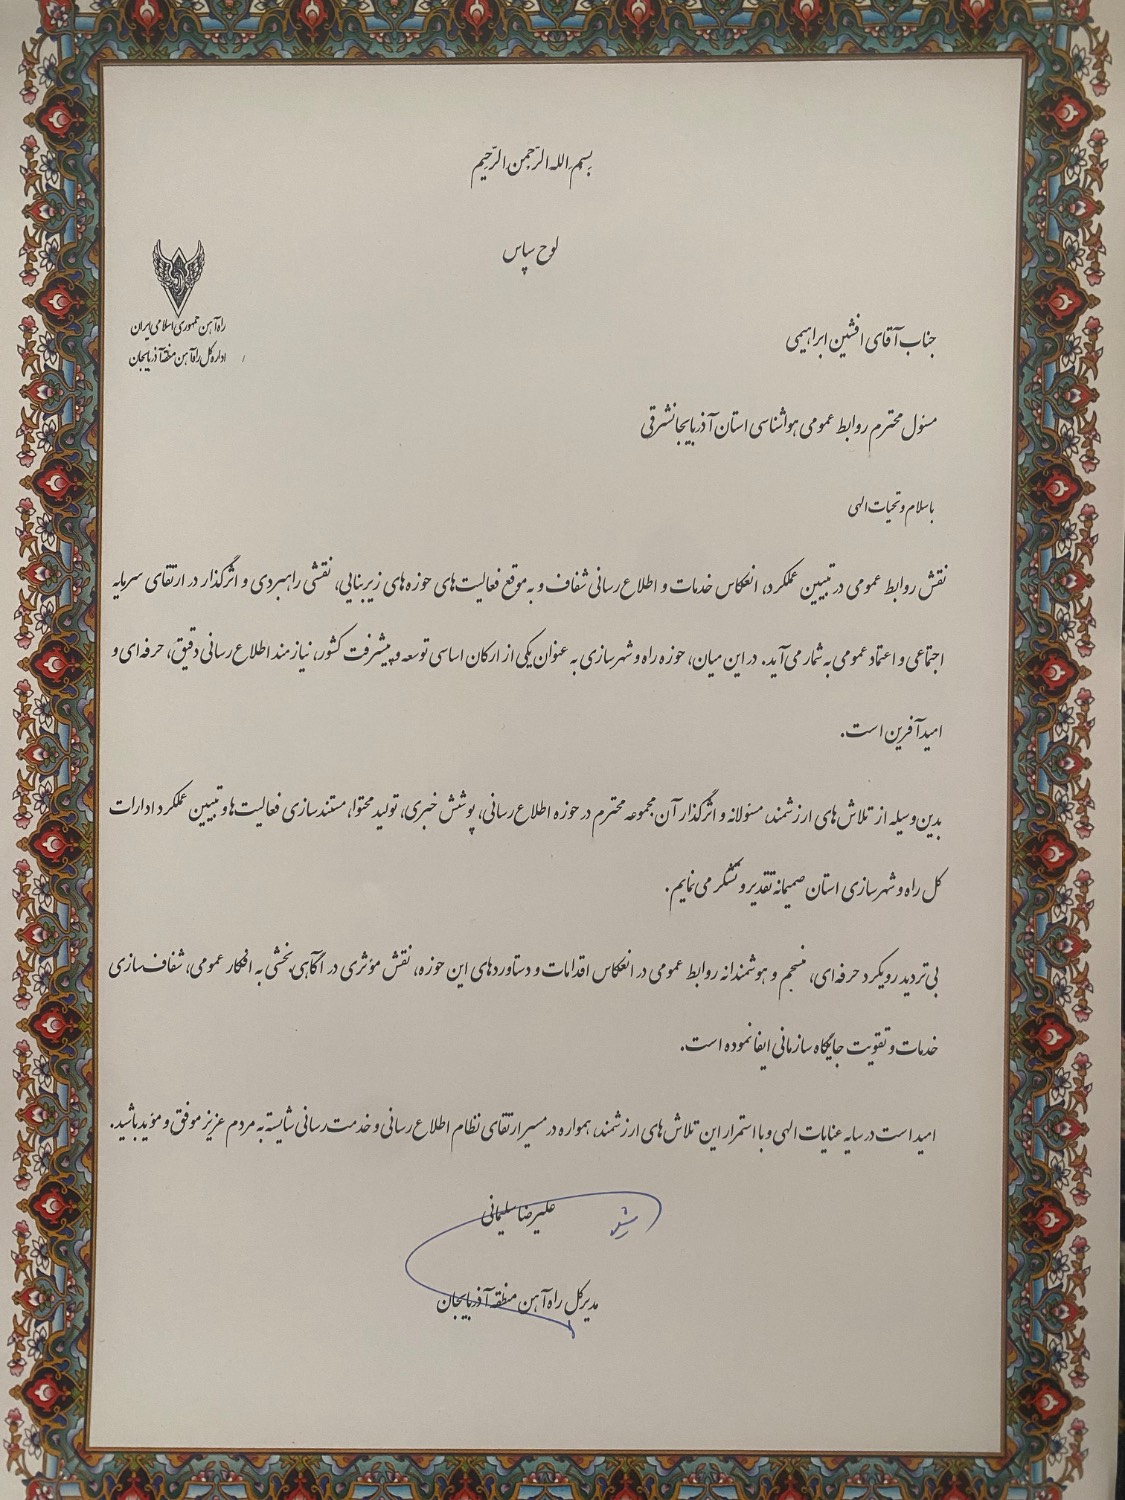 بسم الله الرّحمن الرّحیم
لوح سپاس
راه‌آهن جمهوری اسلامی ایران
اداره کل راه‌آهن منطقه آذربایجان
جناب آقای افشین ابراهیمی
مسئول محترم روابط عمومی هواشناسی استان آذربایجانشرقی
باسلام و تحیات الهی
نقش روابط عمومی در تبیین عملکرد، انعکاس خدمات و اطلاع‌رسانی شفاف و به‌موقع فعالیت‌های حوزه‌های زیربنایی، نقشی راهبردی و اثرگذار در ارتقای سرمایه
اجتماعی و اعتماد عمومی به شمار می‌آید. در این میان، حوزه راه و شهرسازی به عنوان یکی از ارکان اساسی توسعه و پیشرفت کشور، نیازمند اطلاع‌رسانی دقیق، حرفه‌ای و
امیدآفرین است.
بدین‌وسیله از تلاش‌های ارزشمند، مسئولانه و اثرگذار آن مجموعه محترم در حوزه اطلاع‌رسانی، پوشش خبری، تولید محتوا، مستندسازی فعالیت‌ها و تبیین عملکرد ادارات
کل راه و شهرسازی استان صمیمانه تقدیر و تشکر می‌نمایم.
بی‌تردید رویکرد حرفه‌ای، منسجم و هوشمندانه روابط عمومی در انعکاس اقدامات و دستاوردهای این حوزه، نقش مؤثری در آگاهی‌بخشی به افکار عمومی، شفاف‌سازی
خدمات و تقویت جایگاه سازمانی ایفا نموده است.
امید است در سایه عنایات الهی و با استمرار این تلاش‌های ارزشمند، همواره در مسیر ارتقای نظام اطلاع‌رسانی و خدمت‌رسانی شایسته به مردم عزیز موفق و مؤید باشید.
علیرضا سلیمانی
مدیرکل راه‌آهن منطقه آذربایجان